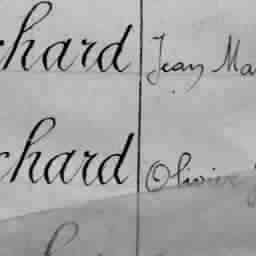 chard Jean Ma
chard Olivier